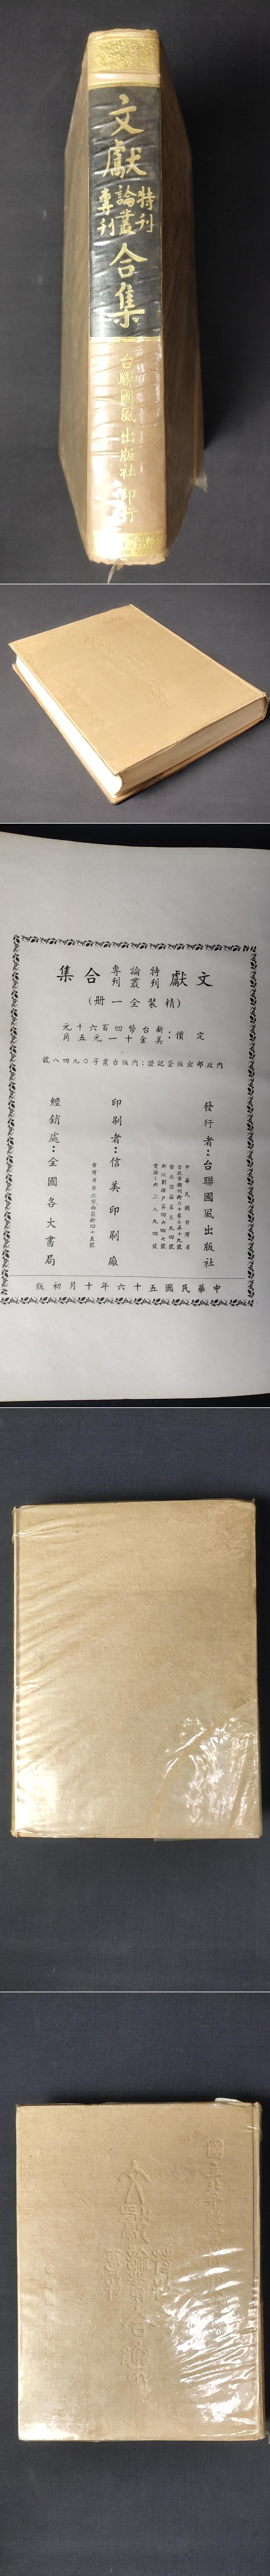 文獻
特刊
論叢
專刊
合集
台聯國風出版社印行
文獻特刊論叢專刊合集
(精裝全一冊)
定價：新台幣四百六十元
美金十一元五角
內政部出版登記證：內版台業字〇九四八號
發行者：台聯國風出版社
中華民國台灣省
印刷者：信美印刷廠
經銷處：全國各大書局
中華民國五十六年十月初版
文獻
特刊
論叢
專刊
合集